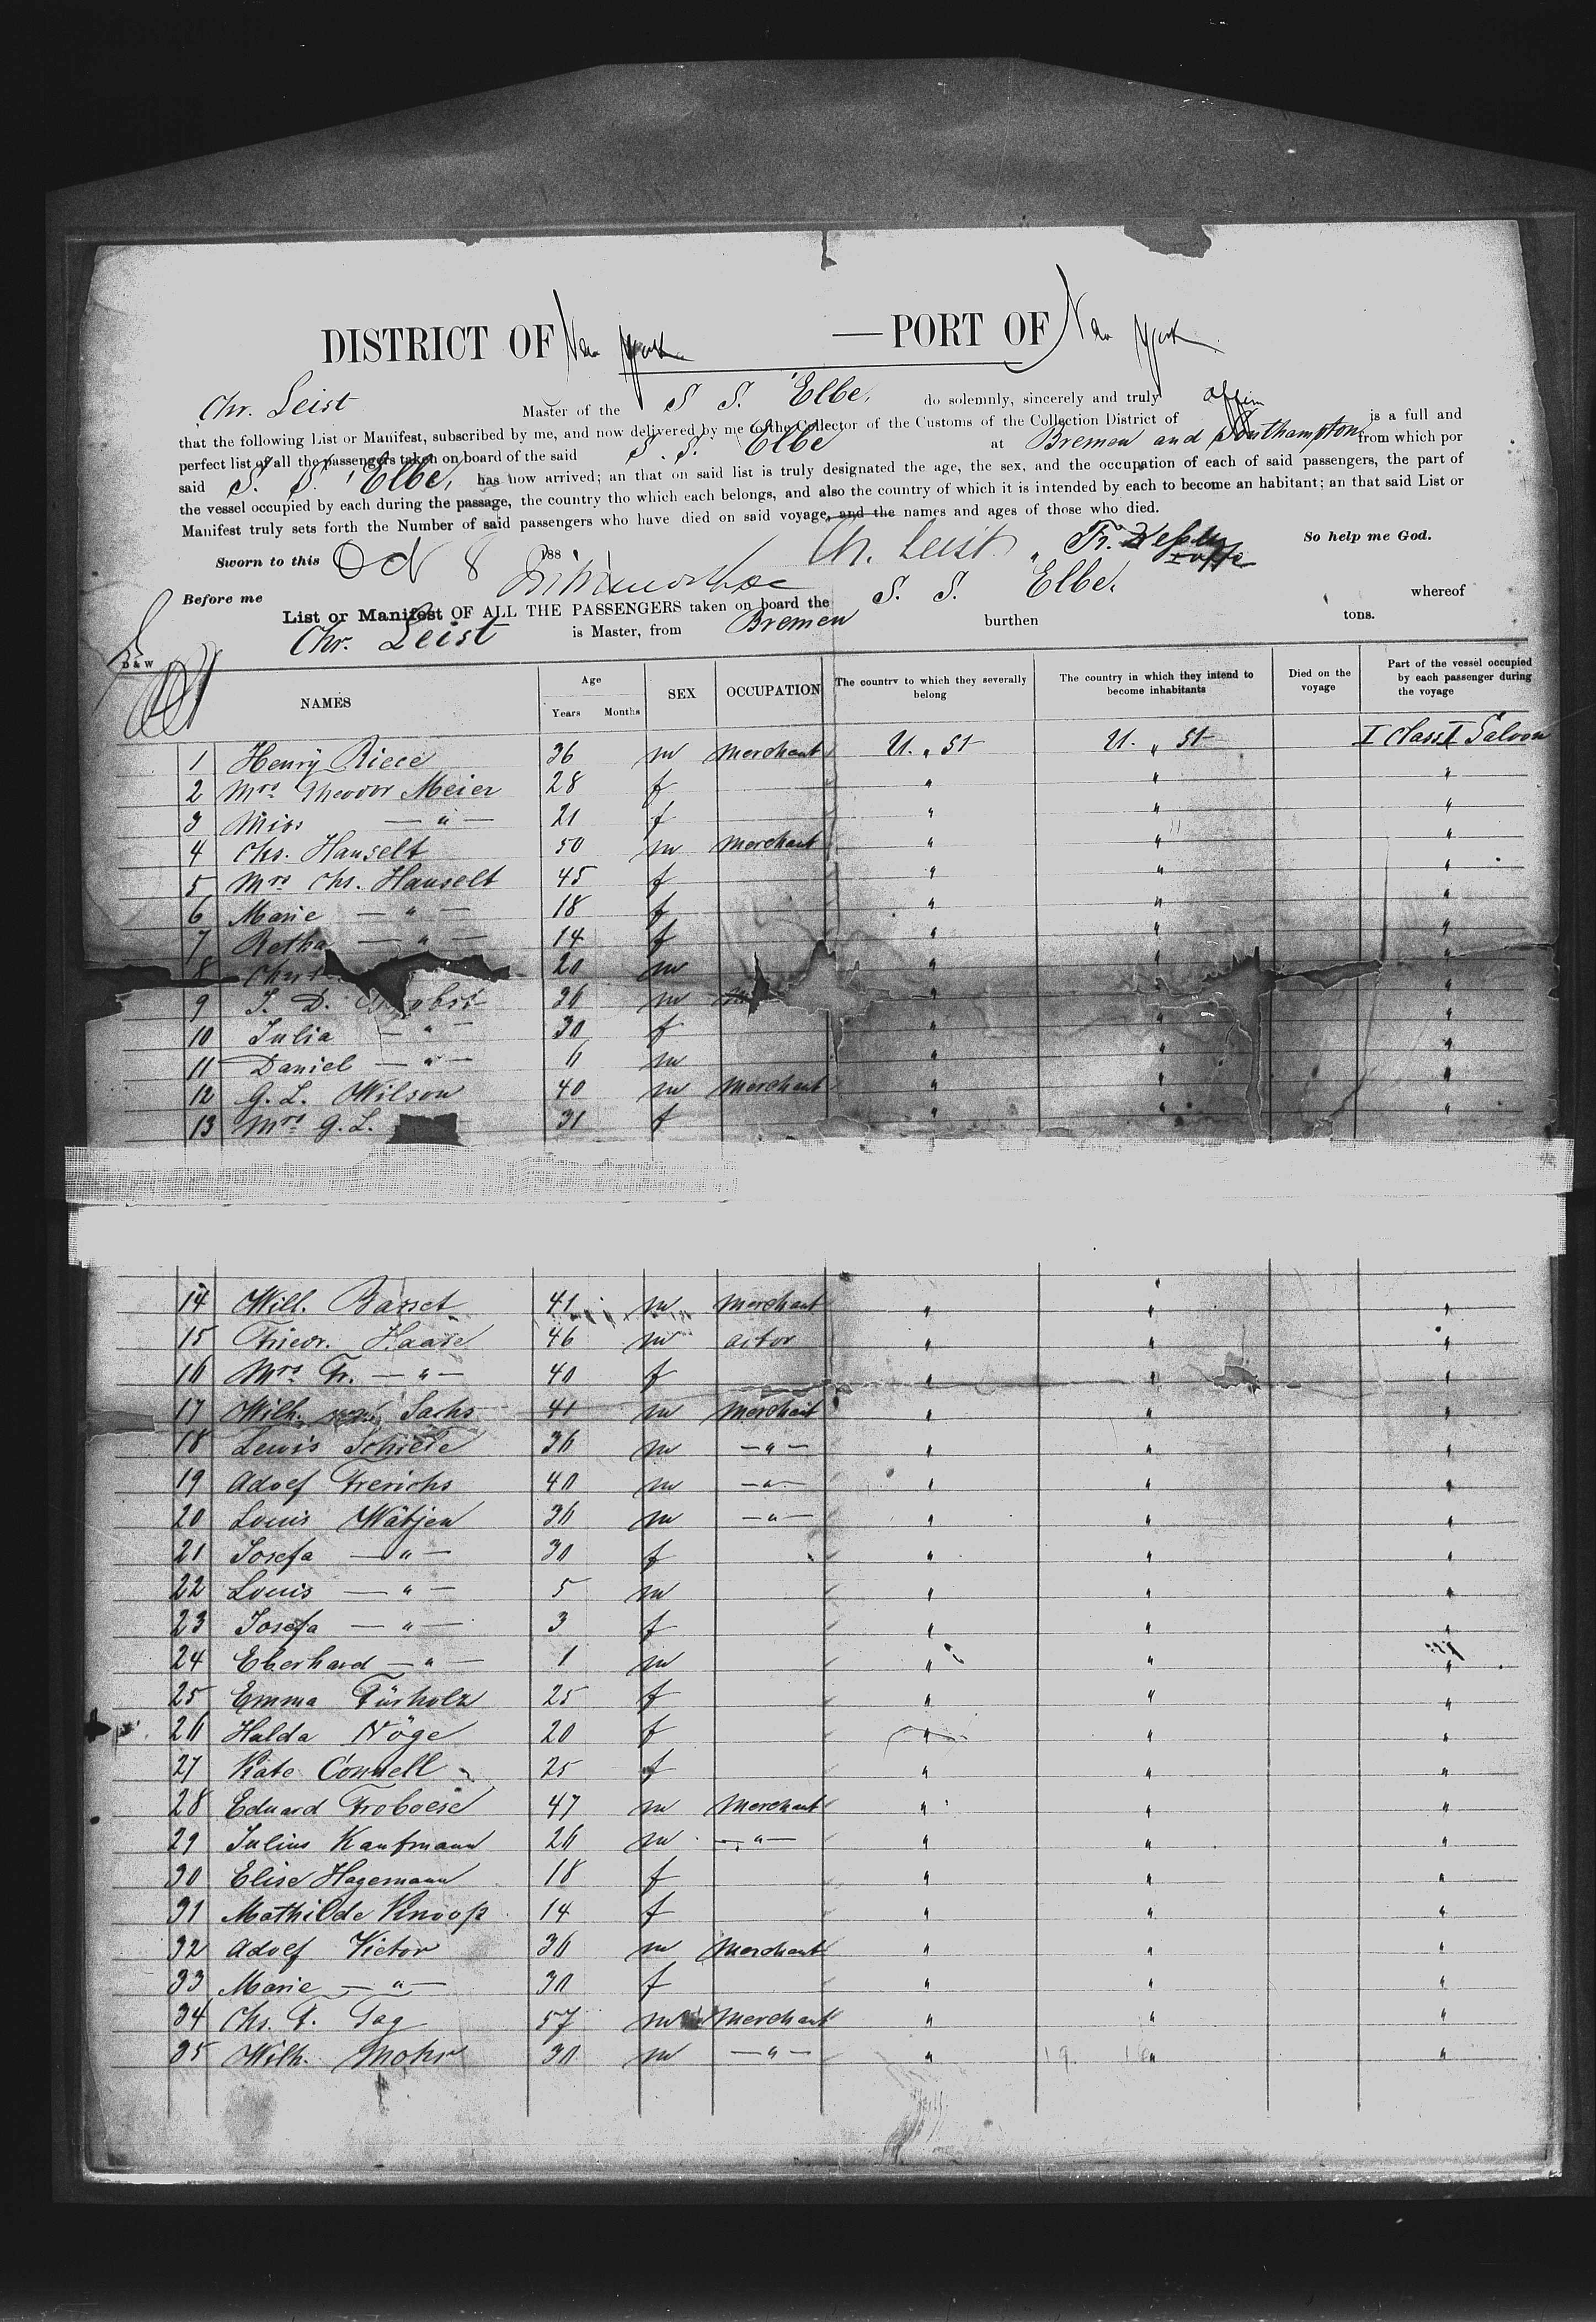 DISTRICT OF New York — PORT OF New York
Chr. Leist Master of the S. S. Elbe, do solemnly, sincerely and truly affirm
that the following List or Manifest, subscribed by me, and now delivered by me to the Collector of the Customs of the Collection District of is a full and
perfect list of all the passengers taken on board of the said S. S. Elbe at Bremen and Southampton from which por
said S. S. Elbe, has now arrived; an that on said list is truly designated the age, the sex, and the occupation of each of said passengers, the part of
the vessel occupied by each during the passage, the country tho which each belongs, and also the country of which it is intended by each to become an habitant; an that said List or
Manifest truly sets forth the Number of said passengers who have died on said voyage, and the names and ages of those who died.
Sworn to this Oct 8 188 Ch. Leist So help me God.
Before me
List or Manifest OF ALL THE PASSENGERS taken on board the S. S. Elbe. whereof
Chr. Leist is Master, from Bremen burthen tons.
D & W
NAMES Age Years Months SEX OCCUPATION The country to which they severally belong The country in which they intend to become inhabitants Died on the voyage Part of the vessel occupied by each passenger during the voyage
1 Henry Riece 36 m merchant U. " St U. " St I Class I Saloon
2 Mrs. Theodor Meier 28 f " " "
3 Miss — " — 21 f " " "
4 Chs. Hauselt 50 m merchant " " "
5 Mrs Chs. Hauselt 45 f " " "
6 Marie — " — 18 f " " "
7 Retha — " — 14 f " " "
8 20 m " " "
9 J. D. 36 m " " "
10 Julia — " — 30 f " " "
11 Daniel — " — 11 m " " "
12 G. L. Wilson 40 m merchant " " "
13 Mrs. G. L. 31 f " " "
14 Will. Basset 41 m merchant " " "
15 Friedr. Haase 46 m actor " " "
16 Mrs. Fr. — " — 40 f " " "
17 Wilh. Sachs 41 m merchant " " "
18 Lewis Schiele 36 m — " — " " "
19 Adolf Frerichs 40 m — " — " " "
20 Louis Wätjen 36 m — " — " " "
21 Josefa — " — 30 f " " "
22 Louis — " — 5 m " " "
23 Josefa — " — 3 f " " "
24 Eberhard — " — 1 m " " "
25 Emma Fürholz 25 f " " "
26 Hulda Nöge 20 f " " "
27 Kate Connell 25 f " " "
28 Eduard Froboese 47 m merchant " " "
29 Julius Kaufmann 26 m — " — " " "
30 Elise Hagemann 18 f " " "
31 Mathilde Knoop 14 f " " "
32 Adolf Victor 36 m merchant " " "
33 Marie — " — 30 f " " "
34 Chs. F. Tag 57 m merchant " " "
35 Wilh. Mohr 30 m — " — " " "